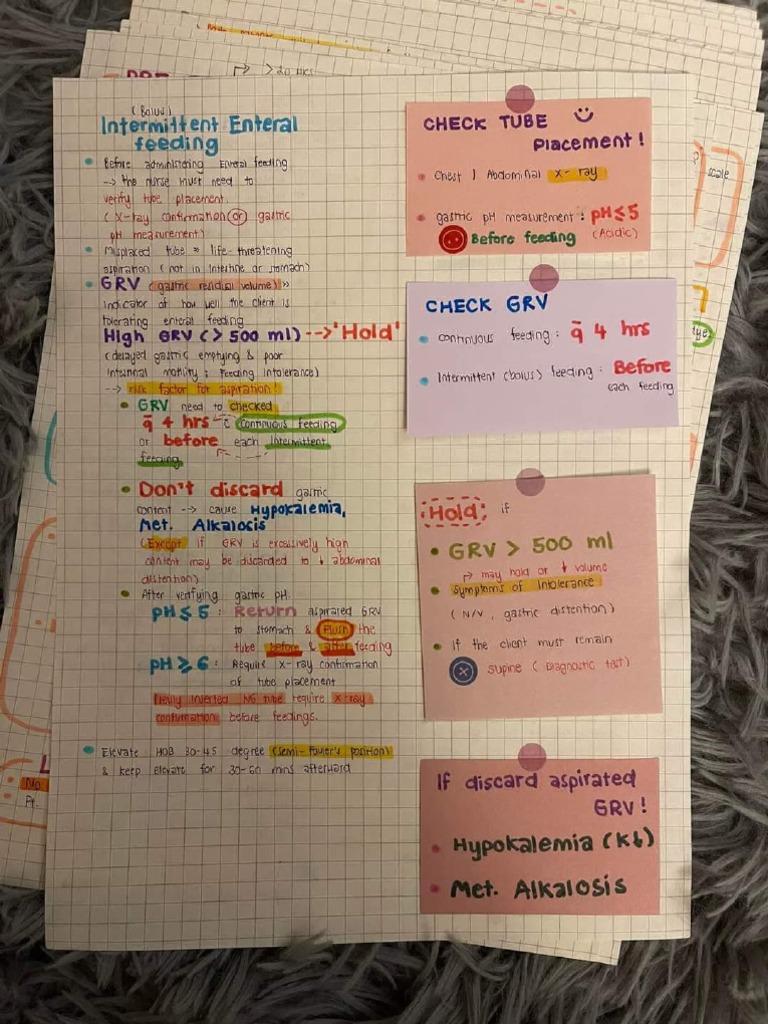 (Bolus)
Intermittent Enteral
feeding
Before administering Enteral feeding
--> the nurse must need to
verify tube placement.
(X-ray confirmation (or) gastric
pH measurement)
Misplaced tube = life-threatening
aspiration (not in intestine or stomach)
GRV (gastric residual volume) »
indicator of how well the client is
tolerating enteral feeding
High GRV (> 500 ml) --> 'Hold'
(delayed gastric emptying & poor
intestinal motility ; Feeding intolerance)
--> risk factor for aspiration!
GRV need to checked
q̄ 4 hrs - c̄ continuous feeding
or before each intermittent
feeding
Don't discard gastric
content --> cause Hypokalemia,
Met. Alkalosis
(Except if GRV is excessively high
content may be discarded to ↓ abdominal
distention)
After verifying gastric pH
pH ≤ 5 : Return aspirated GRV
to stomach & Flush the
tube before & after feeding
pH ≥ 6 : Require X-ray confirmation
of tube placement
Newly inserted NG tube require X-ray
confirmation before feedings.
Elevate HOB 30-45 degree (semi-Fowler's position)
& keep elevate for 30-60 mins afterward
CHECK TUBE
Placement!
Chest / Abdominal x-ray
gastric pH measurement : pH ≤ 5
Before feeding (Acidic)
CHECK GRV
continuous feeding : q̄ 4 hrs
Intermittent (bolus) feeding : Before
each feeding
Hold if
GRV > 500 ml
↱ may hold or ↓ volume
Symptoms of Intolerance
(N/V, gastric distention)
if the client must remain
supine (Diagnostic test)
If discard aspirated
GRV!
Hypokalemia (K↓)
Met. Alkalosis
scale
No
Pt.